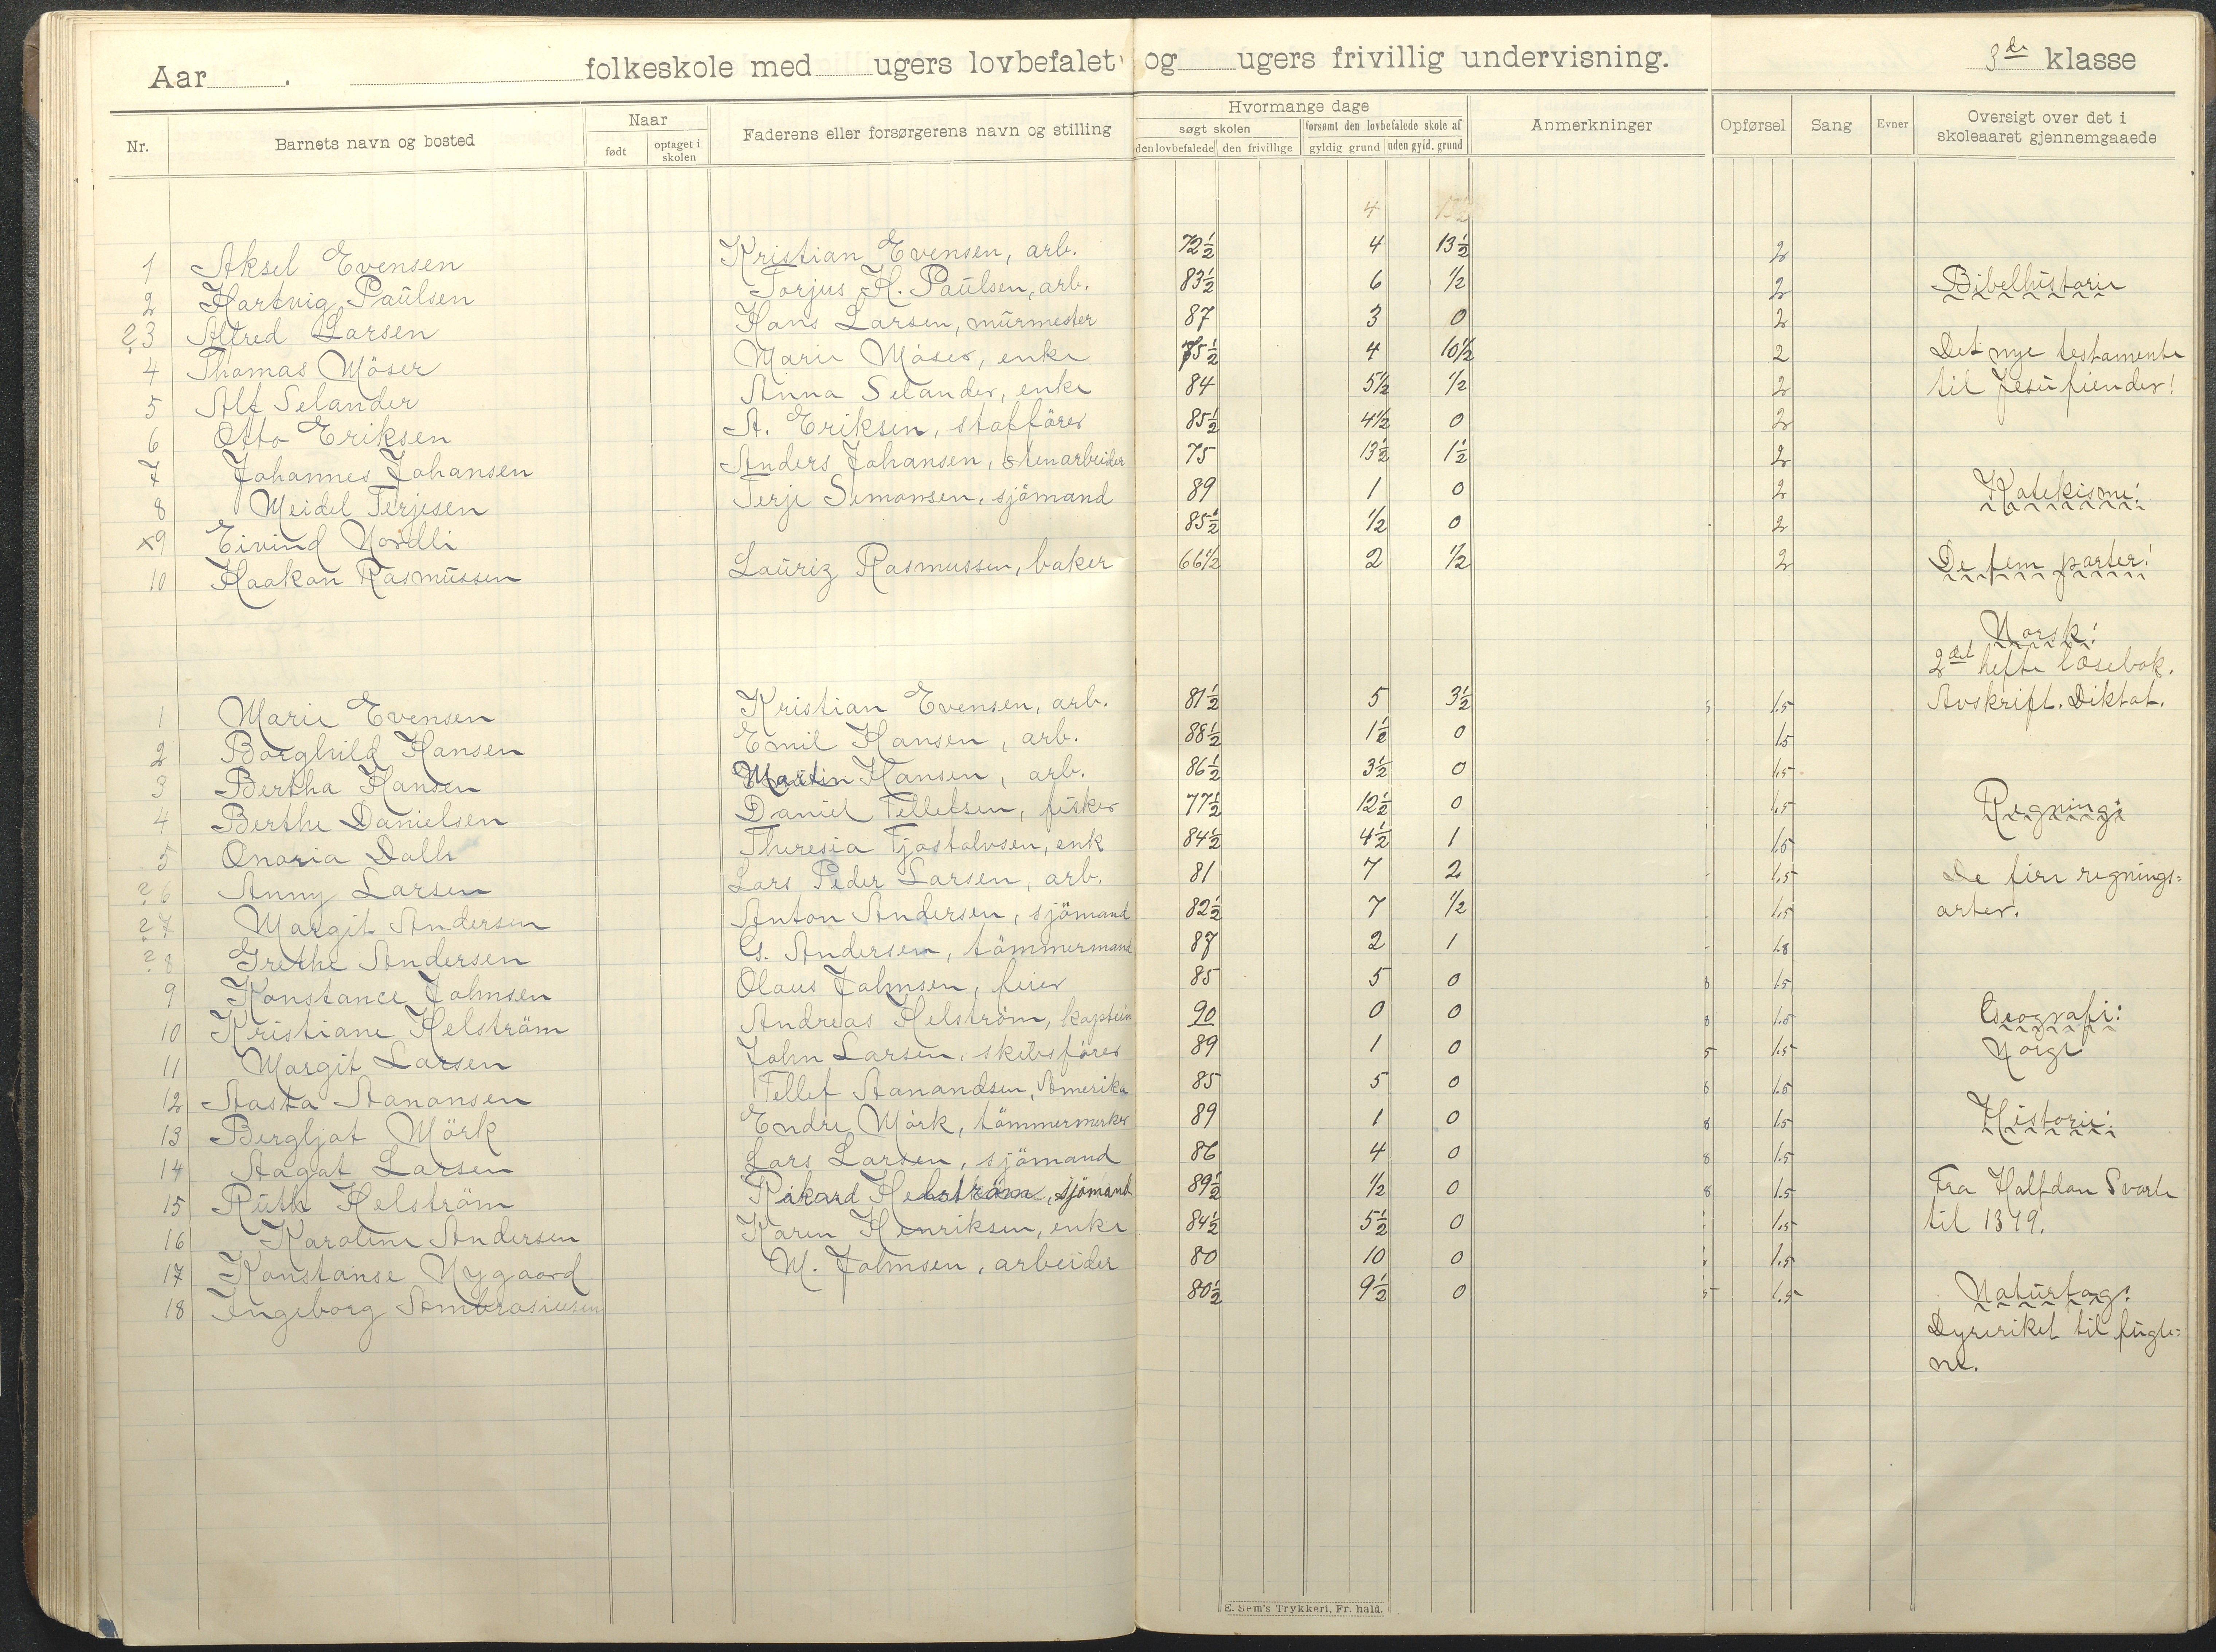 Aar . folkeskole med ugers lovbefalet og ugers frivillig undervisning. 3die klasse
Nr. Barnets navn og bosted Naar født optaget i skolen Faderens eller forsørgerens navn og stilling Hvormange dage søgt skolen den lovbefalede den frivillige forsømt den lovbefalede skole af gyldig grund uden gyld. grund Anmerkninger Opførsel Sang Evner Oversigt over det i skoleaaret gjennemgaaede
4 13½
1 Aksel Evensen Kristian Evensen, arb. 72½ 4 13½ 2
2 Hartvig Paulsen Torjus H. Paulsen, arb. 83½ 6 ½ 2
? 3 Alfred Larsen Hans Larsen, murmester 87 3 0 2
4 Thomas Möser Marie Möser, enke 75½ 4 10½ 2
5 Alf Selander Anna Selander, enke 84 5½ ½ 2
6 Otto Eriksen A. Eriksen, stafförer 85½ 4½ 0 2
7 Johannes Johansen Anders Johansen, stenarbeider 75 13½ 1½ 2
8 Meidel Terjesen Terje Simonsen, sjömand 89 1 0 2
x9 Eivind Nordli 85½ ½ 0 2
10 Haakon Rasmussen Lauriz Rasmussen, baker 66½ 2 ½ 2
1 Marie Evensen Kristian Evensen, arb. 81½ 5 3½ 1.5
2 Borghild Hansen Emil Hansen, arb. 88½ 1½ 0 1.5
3 Bertha Hansen Martin Hansen, arb. 86½ 3½ 0 1.5
4 Berthe Danielsen Daniel Tellefsen, fisker 77½ 12½ 0 1.5
5 Onaria Dalh Theresia Tjostolvsen, enk 84½ 4½ 1 1.5
? 6 Anny Larsen Lars Peder Larsen, arb. 81 7 2 1.5
? 7 Margit Andersen Anton Andersen, sjömand 82½ 7 ½ 1.5
? 8 Grethe Andersen G. Andersen, tömmermand 87 2 1 1.8
9 Konstance Johnsen Olaus Johnsen, feier 85 5 0 1.5
10 Kristiane Helström Andreas Helström, kaptein 90 0 0 1.5
11 Margit Larsen John Larsen, skibsförer 89 1 0 1.5
12 Aasta Aanansen Tellef Aanandsen, Amerika 85 5 0 1.5
13 Bergljot Mörk Endre Mörk, tömmermerker 89 1 0 1.5
14 Aagat Larsen Lars Larsen, sjömand 86 4 0 1.5
15 Ruth Helström Rikard Helström, sjömand 89½ ½ 0 1.5
16 Karoline Andersen Karen Henriksen, enke 84½ 5½ 0 1.5
17 Konstanse Nygaard M. Johnsen, arbeider 80 10 0 1.5
18 Ingeborg Ambrosiusen 80½ 9½ 0 1.5
Bibelhistorie
Det nye testamente
til Jesu fiender!
Katekisme!
De fem parter!
Norsk!
2det hefte læsebok.
Avskrift. Diktat.
Regning:
De fire regnings=
arter.
Geografi:
Norge
Historie!
Fra Halfdan Svarte
til 1319.
Naturfag:
Dyreriket til fugle=
ne.
E. Sem's Trykkeri, Fr. hald.